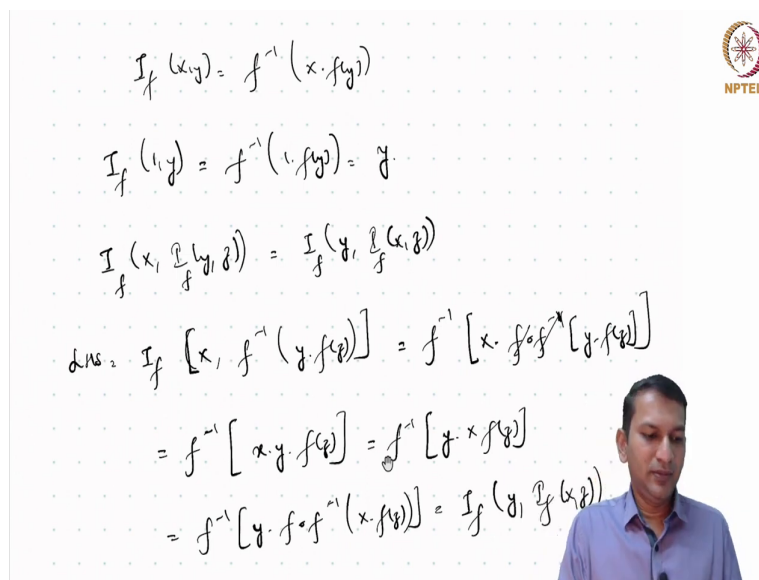 I_f (x,y) = f^{-1} (x. f(y))
NPTEL
I_f (1,y) = f^{-1} (1. f(y)) = y.
I_f (x, I_f (y, z)) = I_f (y, I_f (x, z))
LHS = I_f [x, f^{-1} (y. f(z))] = f^{-1} [x. f∘f^{-1} [y. f(z)]]
= f^{-1} [x. y. f(z)] = f^{-1} [y. x f(z)]
= f^{-1} [y. f∘f^{-1} (x. f(z))] = I_f (y, I_f (x, z))